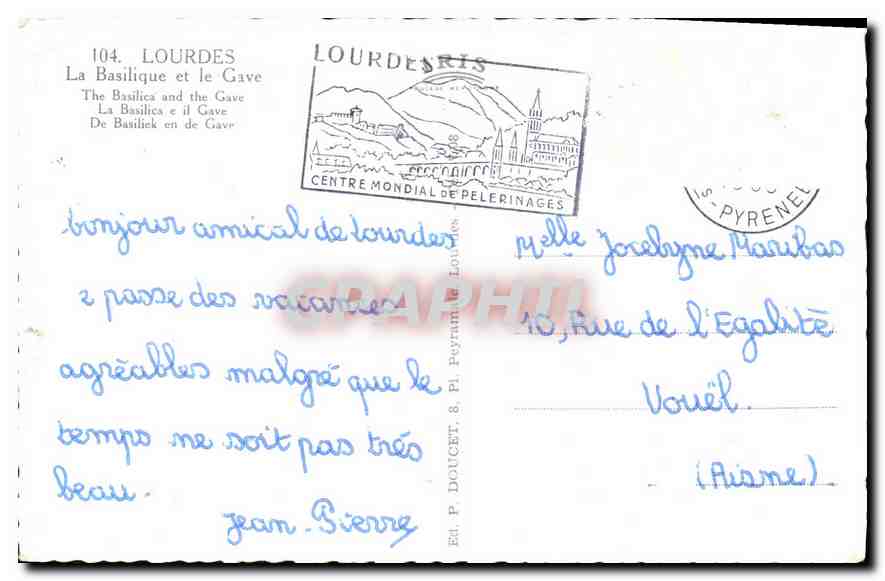 104. LOURDES
La Basilique et le Gave
The Basilica and the Gave
La Basilica e il Gave
De Basiliek en de Gave
LOURDES
CENTRE MONDIAL DE PELERINAGES
S-PYRENEE
bonjour amical de Lourdes
passe des vacances
agréables malgré que le
temps ne soit pas très
beau.
Jean-Pierre
Ed. P. DOUCET, 8, Pl. Peyramale, Lourdes
CPAPHIL
Melle Jocelyne Maribas
10, Rue de l'Egalité
Vouël.
(Aisne).